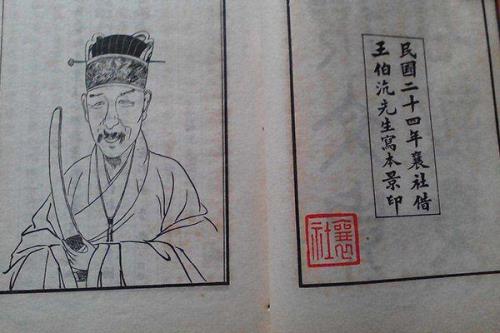 民國二十四年襄社借
王伯沆先生寫本景印
襄社